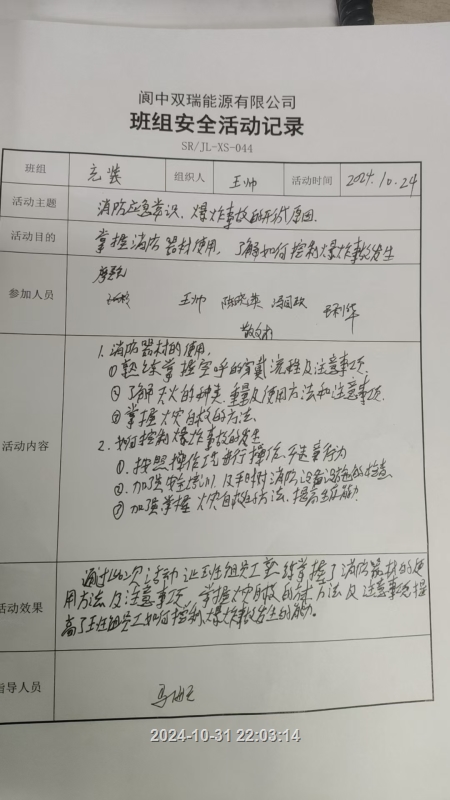 阆中双瑞能源有限公司
班组安全活动记录
SR/JL-XS-044
班组 充装 组织人 王帅 活动时间 2024.10.24
活动主题 消防应急常识、爆炸事故的形成原因.
活动目的 掌握消防器材使用, 了解如何控制爆炸事故发生
参加人员
王帅 陈晓英
活动内容
1.消防器材的使用.
①熟练掌握空呼的穿戴流程及注意事项.
②了解灭火的种类、重量及使用方法和注意事项.
③掌握火灾自救的方法.
2.如何控制爆炸事故的发生
①.按照操作规 进行操作、不违章行为
②.加强安全培训 及平时对消防设备设施的检查
③加强掌握火灾自救的方法、提高 能力
活动效果 通过此次活动 让班组员工熟练掌握了消防器材的使
用方法及注意事项、掌握火灾自救的 方法及注意事项 提
高了班组员工如何控制爆炸事故发生的能力。
指导人员
2024-10-31 22:03:14